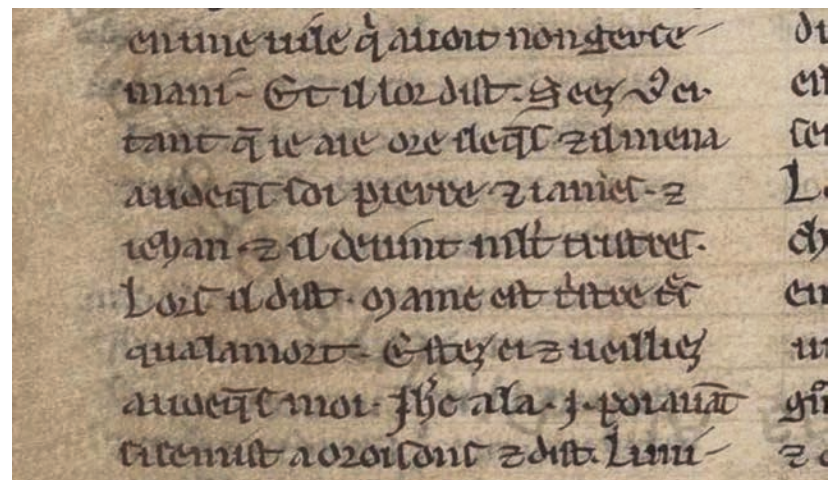 en une uile q̇ auoit non gerce
mani- Et il lor dist. Seez uos ci.
tant q̄ ie aie ore cleq̄s ⁊ il mena
auoeq̄s soi pierre ⁊ iames. ⁊
iehan. ⁊ il deuint mlt tristres.
Lors il dist. Mame est tstre
qualamort. Estez ci ⁊ ueilliez
auoeq̄s moi. Jhc ala .j. poi auāt
si semist a oroisons ⁊ dist. Lum